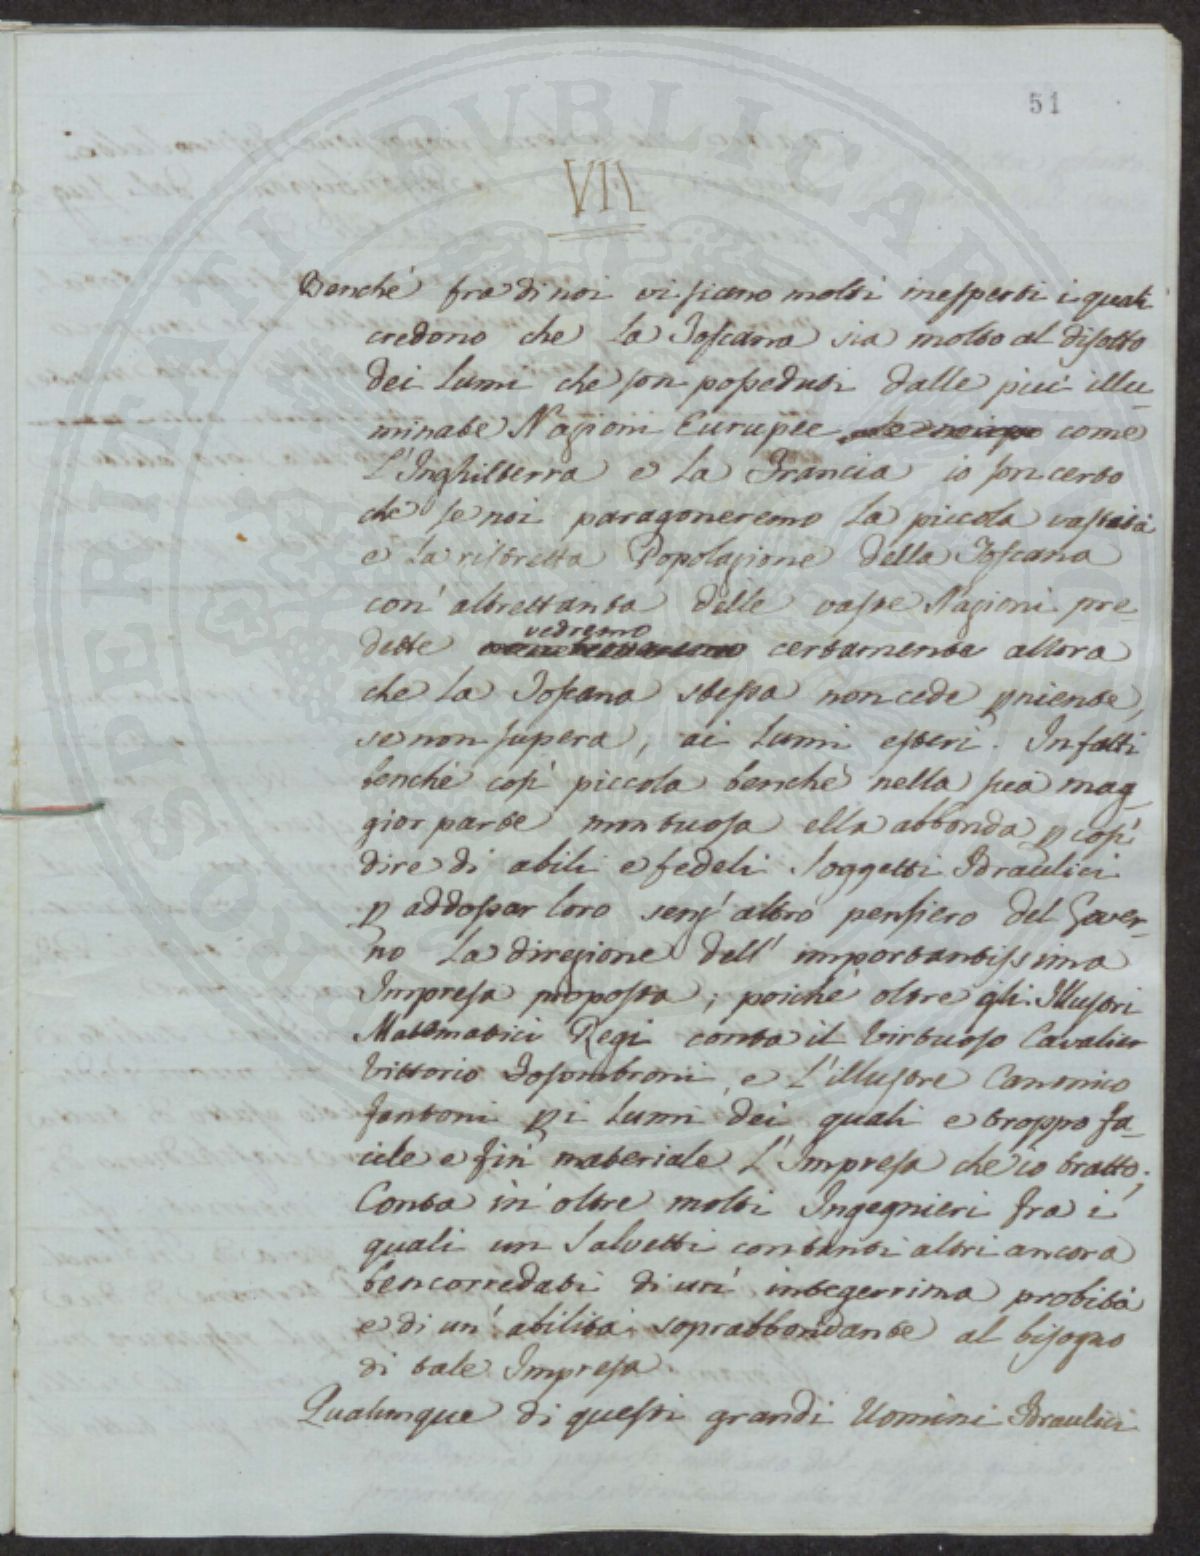 51
VII
Benché fra di noi vi siano molti inesperti i quali
credono che la Toscana sia molto al disotto
dei lumi che son posseduti dalle più illu-
minate Nazioni Europee come
l'Inghilterra e la Francia io son certo
che se noi paragoneremo la piccola vastità
e la ristretta Popolazione della Toscana
con' altrettanta delle vaste Nazioni pre-
dette vedremo certamente allora
che la Toscana stessa non cede p niente,
se non supera, ai lumi esteri. Infatti
benché così piccola benché nella sua mag-
gior parte montuosa ella abbonda p così
dire di abili e fedeli Soggetti Idraulici
p addossar loro senz' altro pensiero del Gover-
no la direzione dell' importantissima
Impresa proposta; poiché oltre gli Illustri
Matematici Regi conta il virtuoso Cavalier
Vittorio Fosombroni e l'illustre Canonico
Fantoni p i lumi dei quali e troppo fa-
cile e fin materiale l'Impresa che io tratto;
Conta in' oltre molti Ingegnieri fra i
quali un Salvetti con tanti altri ancora
ben corredati di un' integerrima probità
e di un' abilità soprabbondante al bisogno
di tale Impresa.
Qualunque di questi grandi Uomini Idraulici
PROSPERITATI PUBLICAE